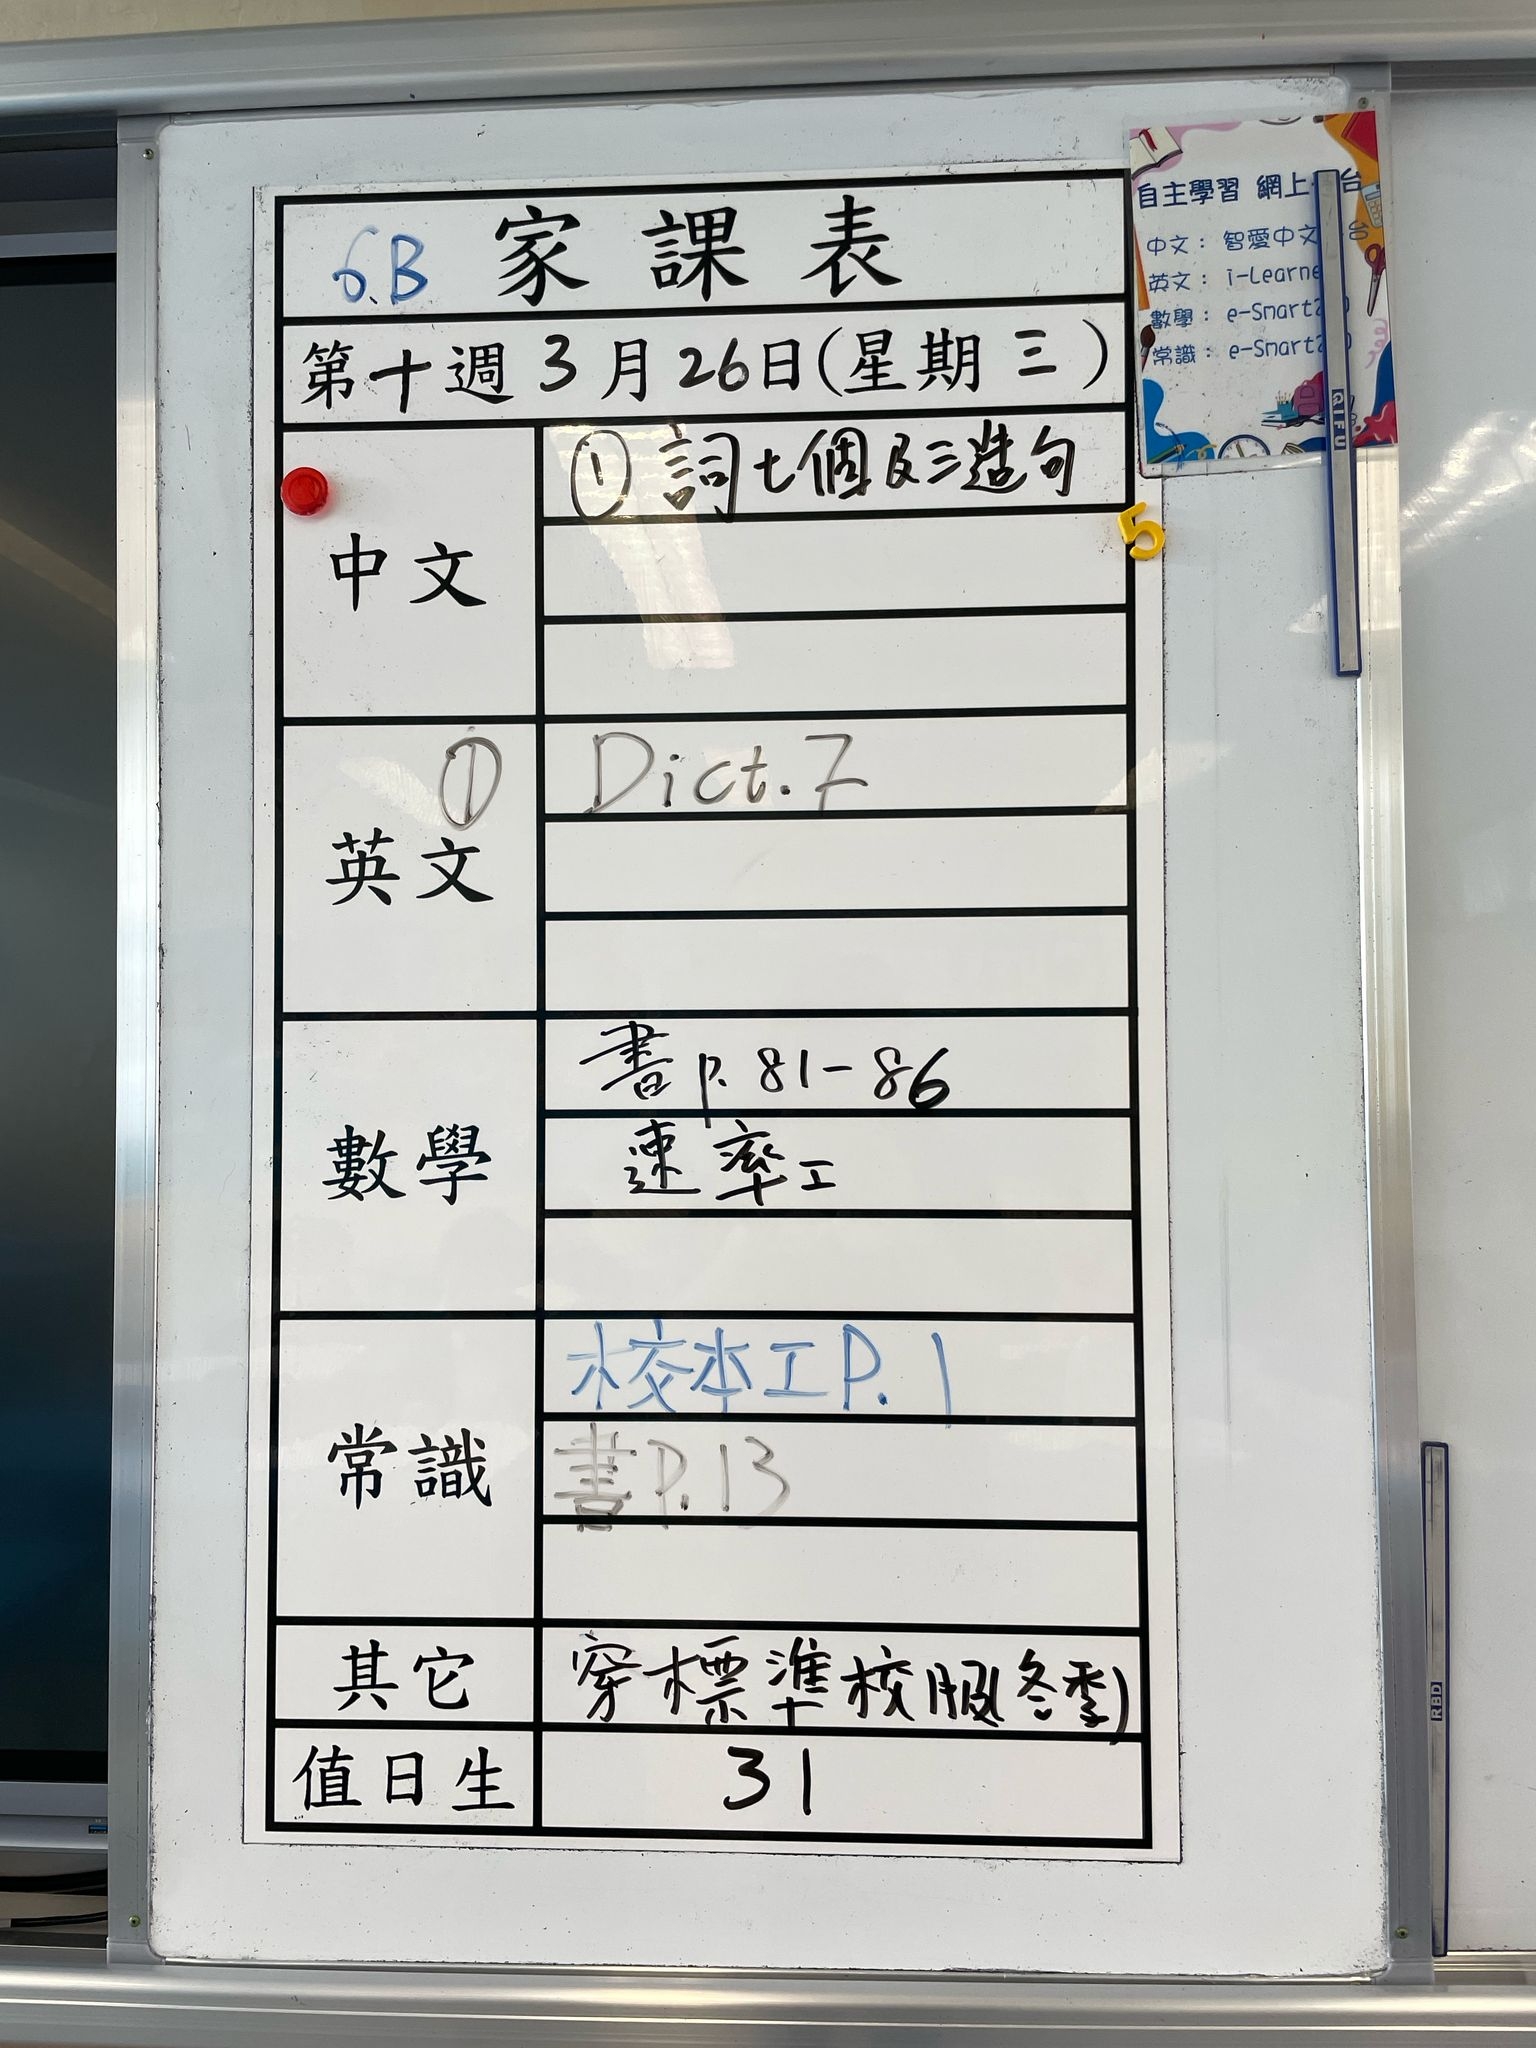 6.B 家課表
第十週 3月26日(星期三)
中文
① 詞七個及三造句
英文
① Dict.7
數學
書 p.81-86
速率工
常識
校本工P.1
書P.13
其它
穿標準校服(冬季)
值日生
31
自主學習 網上 台
中文: 智愛中文 台
英文: i-Learne
數學: e-Smart
常識: e-Smart
5
QIFU
RBD